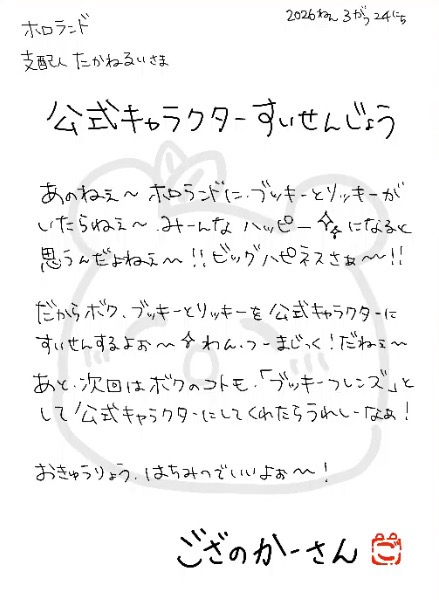 2026ねん 3がつ 24にち
ホロランド
支配人 たかねるいさま
公式キャラクターすいせんじょう
あのねぇ〜 ホロランドに、ブッキーとリッキーが
いたらねぇ〜 みーんな ハッピーになると
思うんだよねぇ〜!!ビッグハピネスさぁ〜!!
だからボク、ブッキーとリッキーを公式キャラクターに
すいせんするよぉ〜 わん、つー まじっく!だねぇ〜
あと、次回はボクのコトモ、「ブッキーフレンズ」と
して公式キャラクターにしてくれたらうれしーなぁ!
おきゅうりょう、はちみつでいいよぉ〜!
ござのかーさん